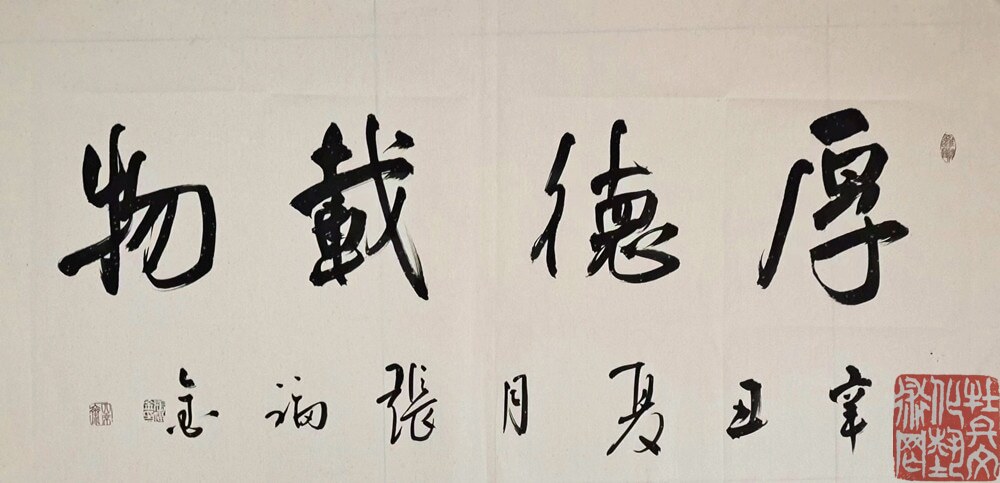 厚德載物
辛丑夏月張福金